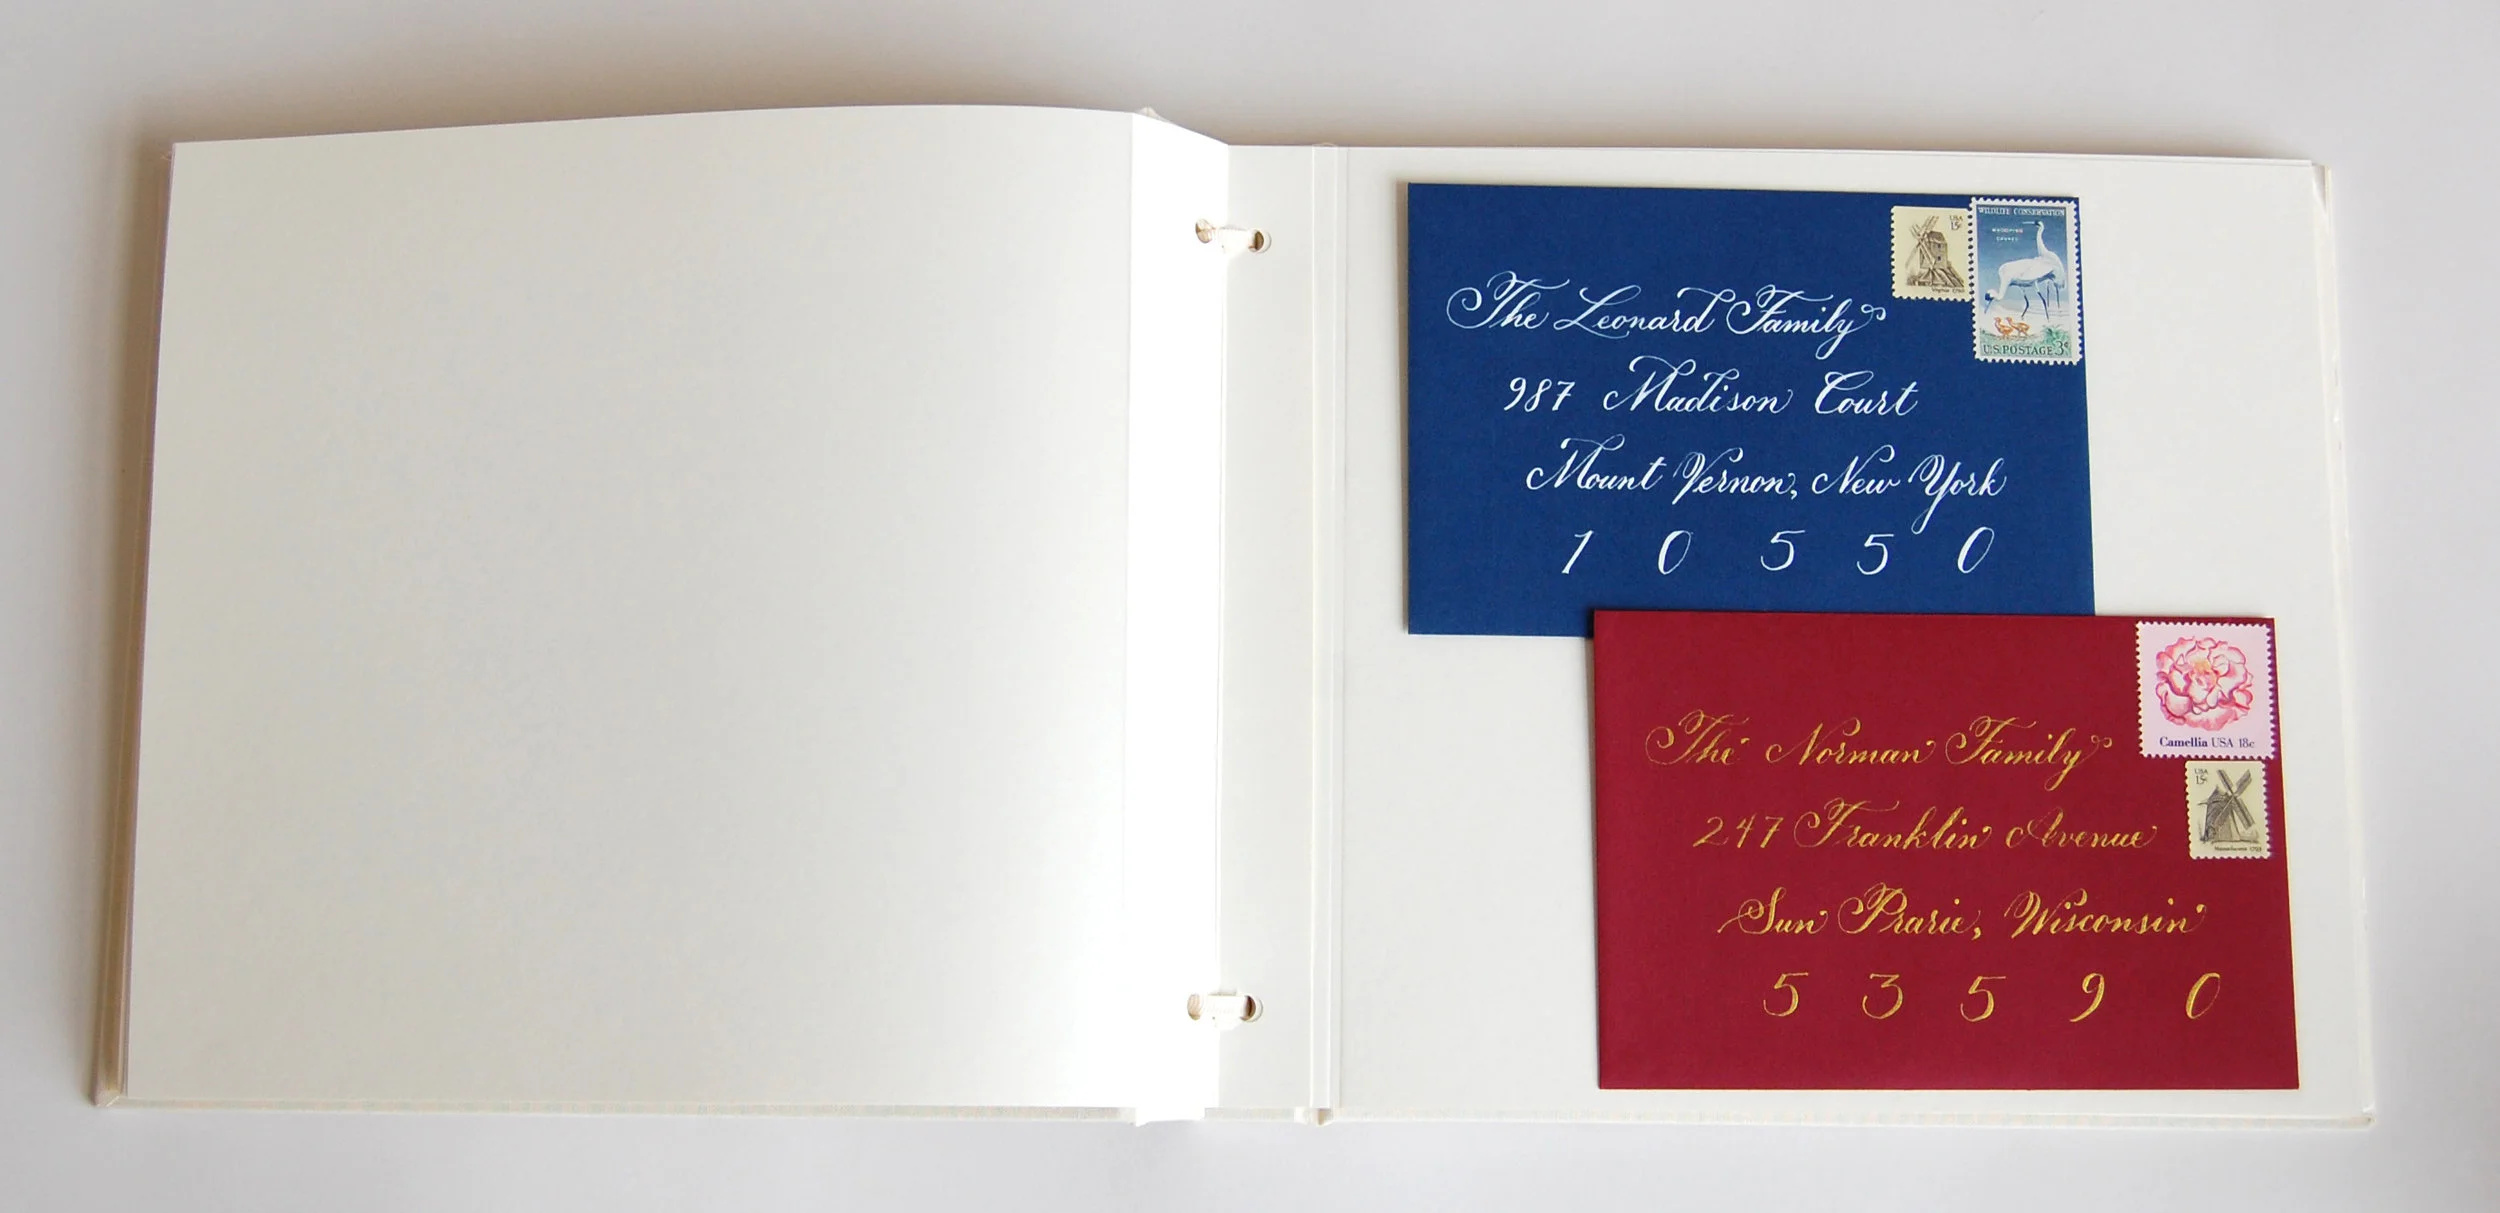 USA
15c
Virginia 1720
WILDLIFE CONSERVATION
WHOOPING
CRANES
U.S. POSTAGE 3¢
The Leonard Family
987 Madison Court
Mount Vernon, New York
10550
Camellia USA 18c
USA
15c
Massachusetts 1793
The Norman Family
247 Franklin Avenue
Sun Prarie, Wisconsin
53590